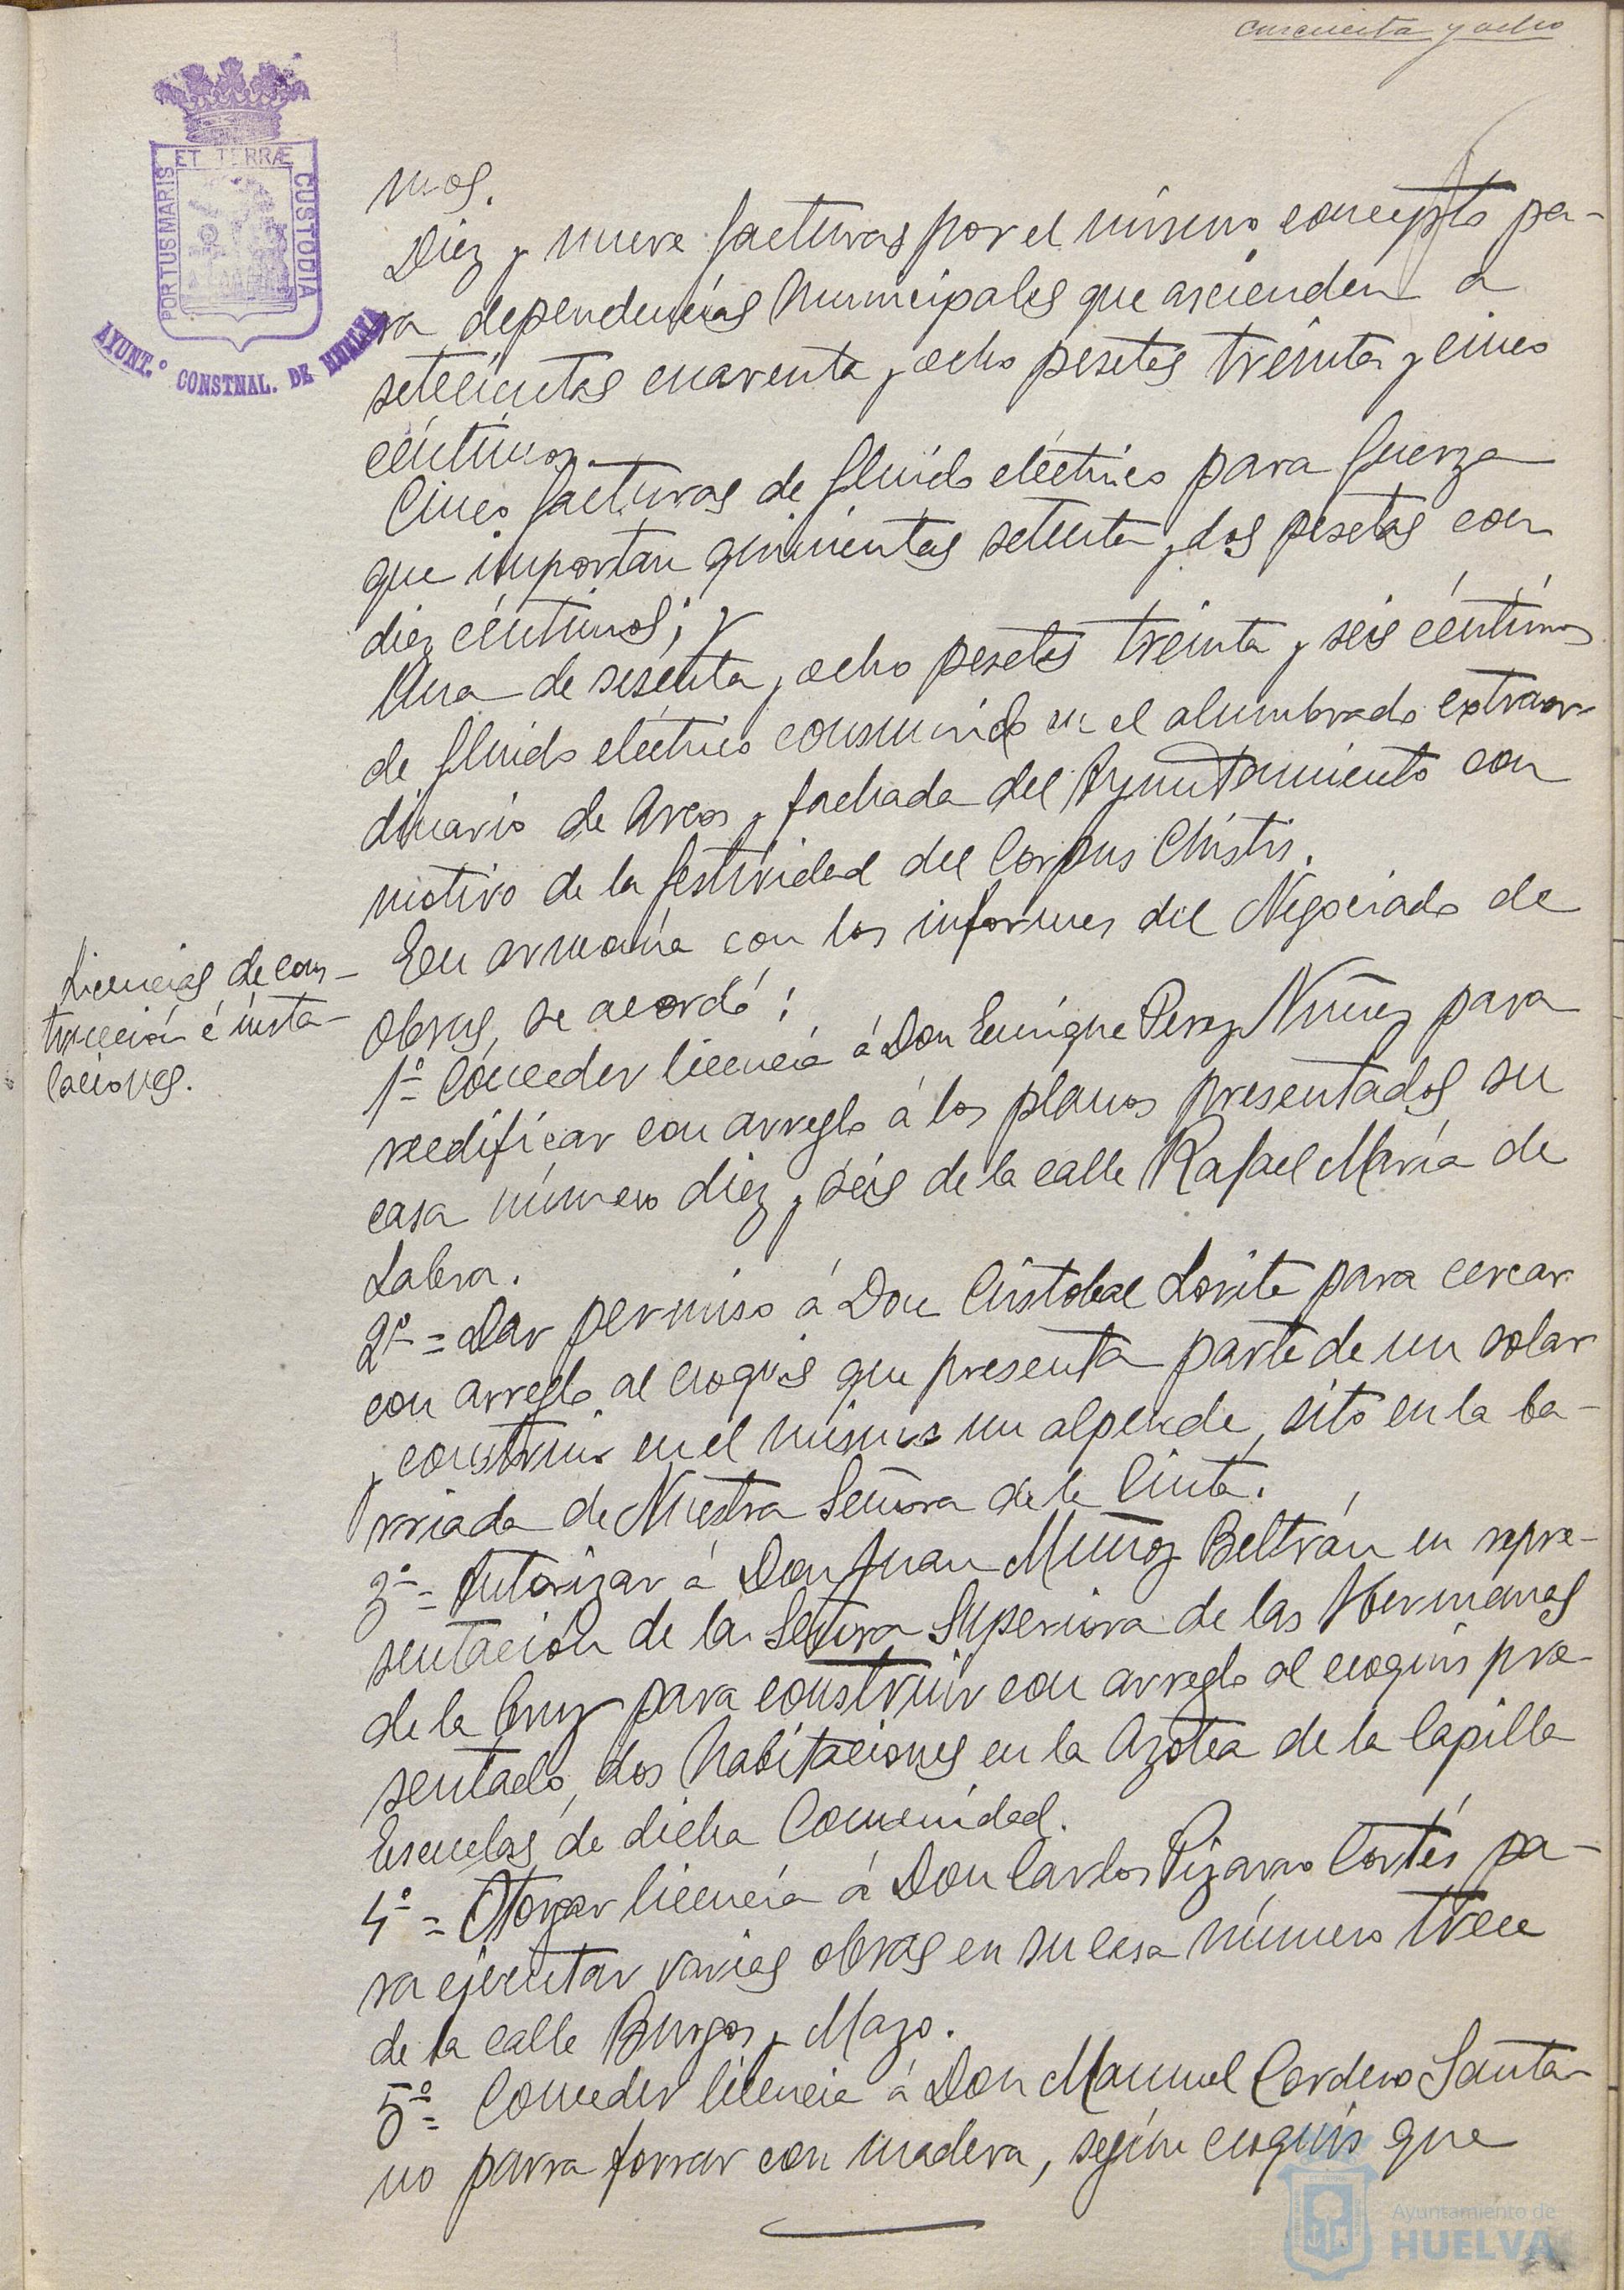 cincuenta y ocho
PORTUS MARIS
ET TERRÆ
CUSTODIA
AYUNT.º CONSTNAL. DE HUELVA
mos.
Diez y nueve facturas por el mismo concepto pa-
ra dependencias Municipales que ascienden a
setecientas cuarenta y ocho pesetas treinta y cinco
céntimos.
Cinco facturas de fluido eléctrico para fuerza
que importan quinientas setenta y dos pesetas con
diez céntimos; y
Una de sesenta y ocho pesetas treinta y seis céntimos
de fluido eléctrico consumido en el alumbrado extraor-
dinario de Arcos y fachada del Ayuntamiento con
motivo de la festividad del Corpus Christis.
Licencias de cons-
trucción é insta-
laciones.
En armonía con los informes del Negociado de
Obras, se acordó:
1º Conceder licencia á Don Enrique Perez Nuñez para
reedificar con arreglo á los planos presentados su
casa número diez y seis de la calle Rafael María de
Labra.
2º = Dar permiso á Don Cristobal Lorite para cercar
con arreglo al croquis que presenta parte de un solar
y construir en el mismo un alpende, sito en la ba-
rriada de Nuestra Señora de la Cinta.
3º = Autorizar á Don Juan Muñoz Beltrán en repre-
sentación de la Señora Superiora de las Hermanas
de la Cruz para construir con arreglo al croquis pre-
sentado, dos habitaciones en la Azotea de la Capilla
Escuelas de dicha Comunidad.
4º = Otorgar licencia á Don Carlos Pizarro Cortés pa-
ra ejecutar varias obras en su casa número trece
de la calle Burgos y Mazo.
5º = Conceder licencia á Don Manuel Cordero Santa-
no parra forrar con madera, según croquis que
Ayuntamiento de
HUELVA